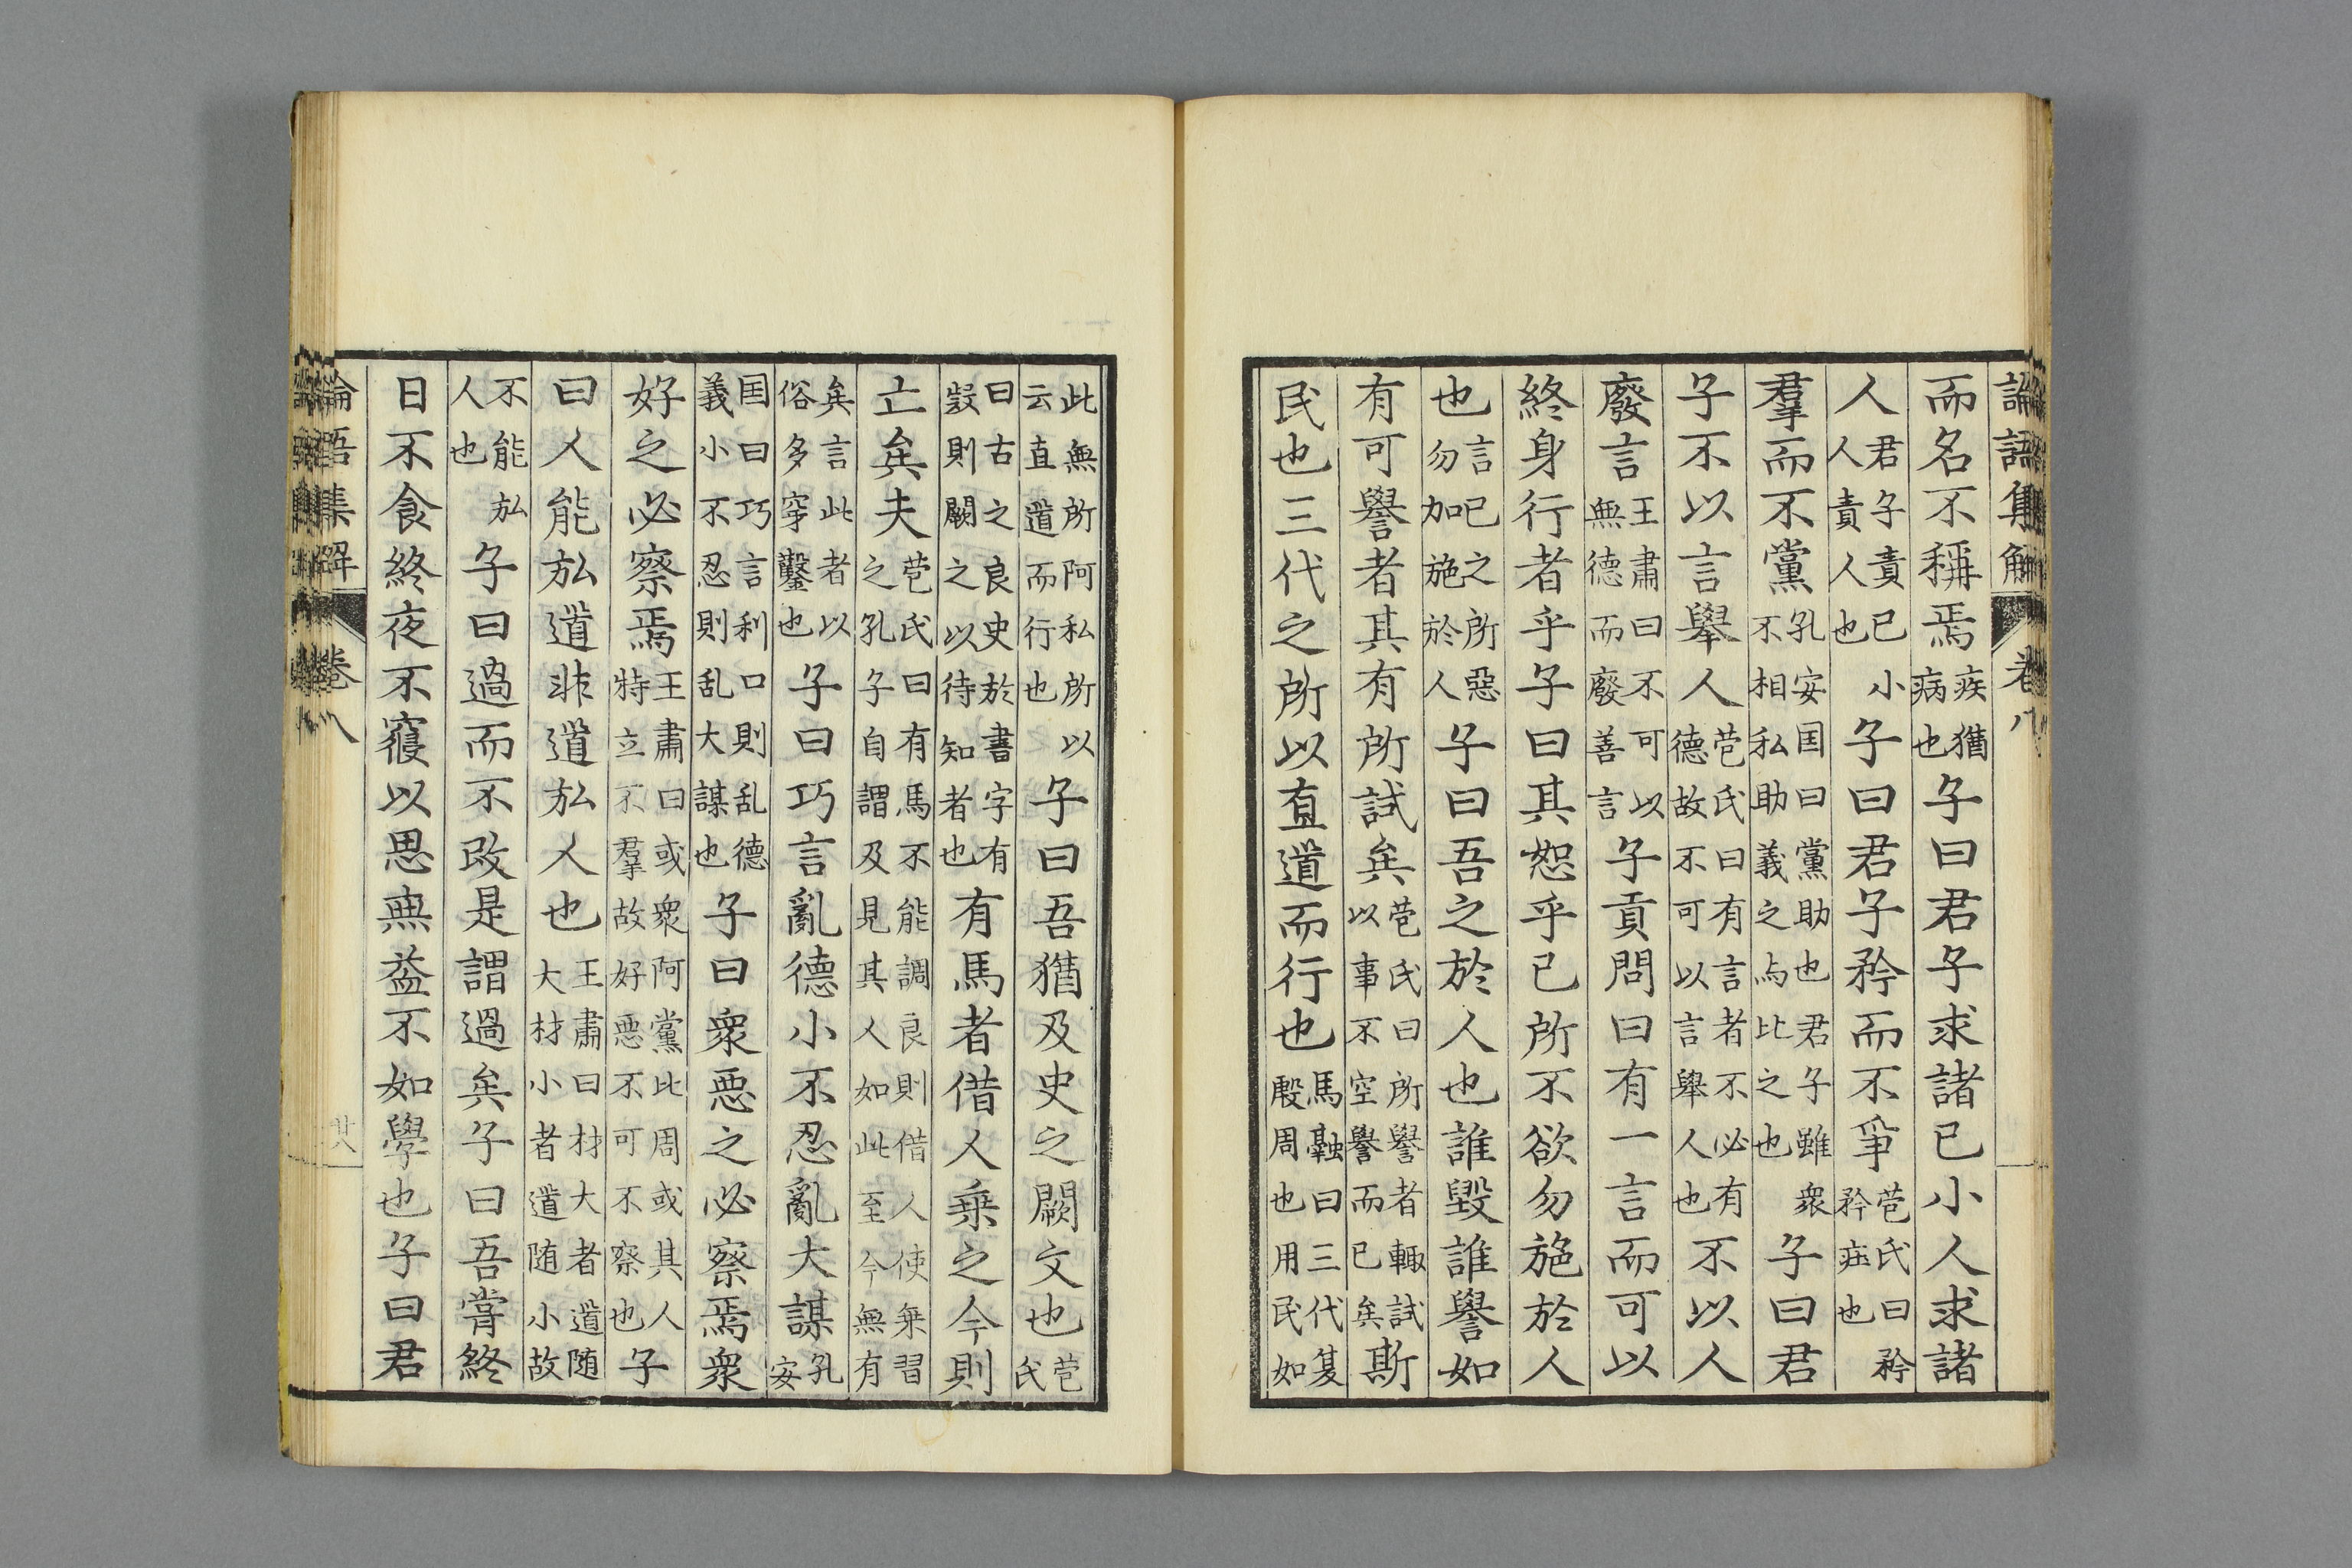 論語集解 卷八
而名不稱焉疾猶病也子曰君子求諸已小人求諸
人君子責已小人責人也子曰君子矜而不爭苞氏曰矜矜疰也
羣而不黨孔安囯曰黨助也君子雖衆不相私助義之与比之也子曰君
子不以言舉人苞氏曰有言者不必有德故不可以言舉人也不以人
廢言王肅曰不可以無德而廢善言子貢問曰有一言而可以
終身行者乎子曰其恕乎已所不欲勿施於人
也言已之所惡勿加施於人子曰吾之於人也誰毀誰譽如
有可譽者其有所試矣苞氏曰所譽者輙試以事不空譽而已矣斯
民也三代之所以直道而行也馬融曰三代夏殷周也用民如
此無所阿私所以云直道而行也子曰吾猶及史之闕文也苞氏
曰古之良史於書字有疑則闕之以待知者也有馬者借人乗之今則
亡矣夫苞氏曰有馬不能調良則借人使乗習之孔子自謂及見其人如此至今無有
矣言此者以俗多穿鑿也子曰巧言亂德小不忍亂大謀孔安
囯曰巧言利口則乱德義小不忍則乱大謀也子曰衆惡之必察焉衆
好之必察焉王肅曰或衆阿黨比周或其人特立不羣故好惡不可不察也子
曰人能弘道非道弘人也王肅曰材大者道随大材小者道随小故
不能弘人也子曰過而不改是謂過矣子曰吾甞終
日不食終夜不寢以思無益不如學也子曰君
論語集解 卷八 廿八